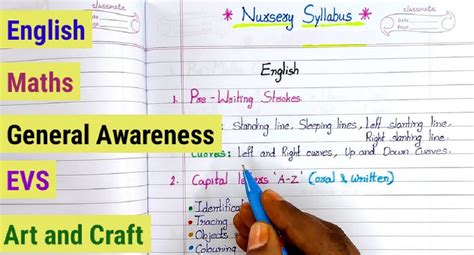 classmate
Date
Page
classmate
Date
Page
* Nursery Syllabus *
English
1. Pre-Writing Strokes
Standing line, Sleeping lines, Left slanting line,
Right slanting line.
Curves: Left and Right curves, Up and Down Curves.
2. Capital letters 'A-Z' (oral & written)
• Identific
• Tracing
• Objects
• Colouring
English
Maths
General Awareness
EVS
Art and Craft